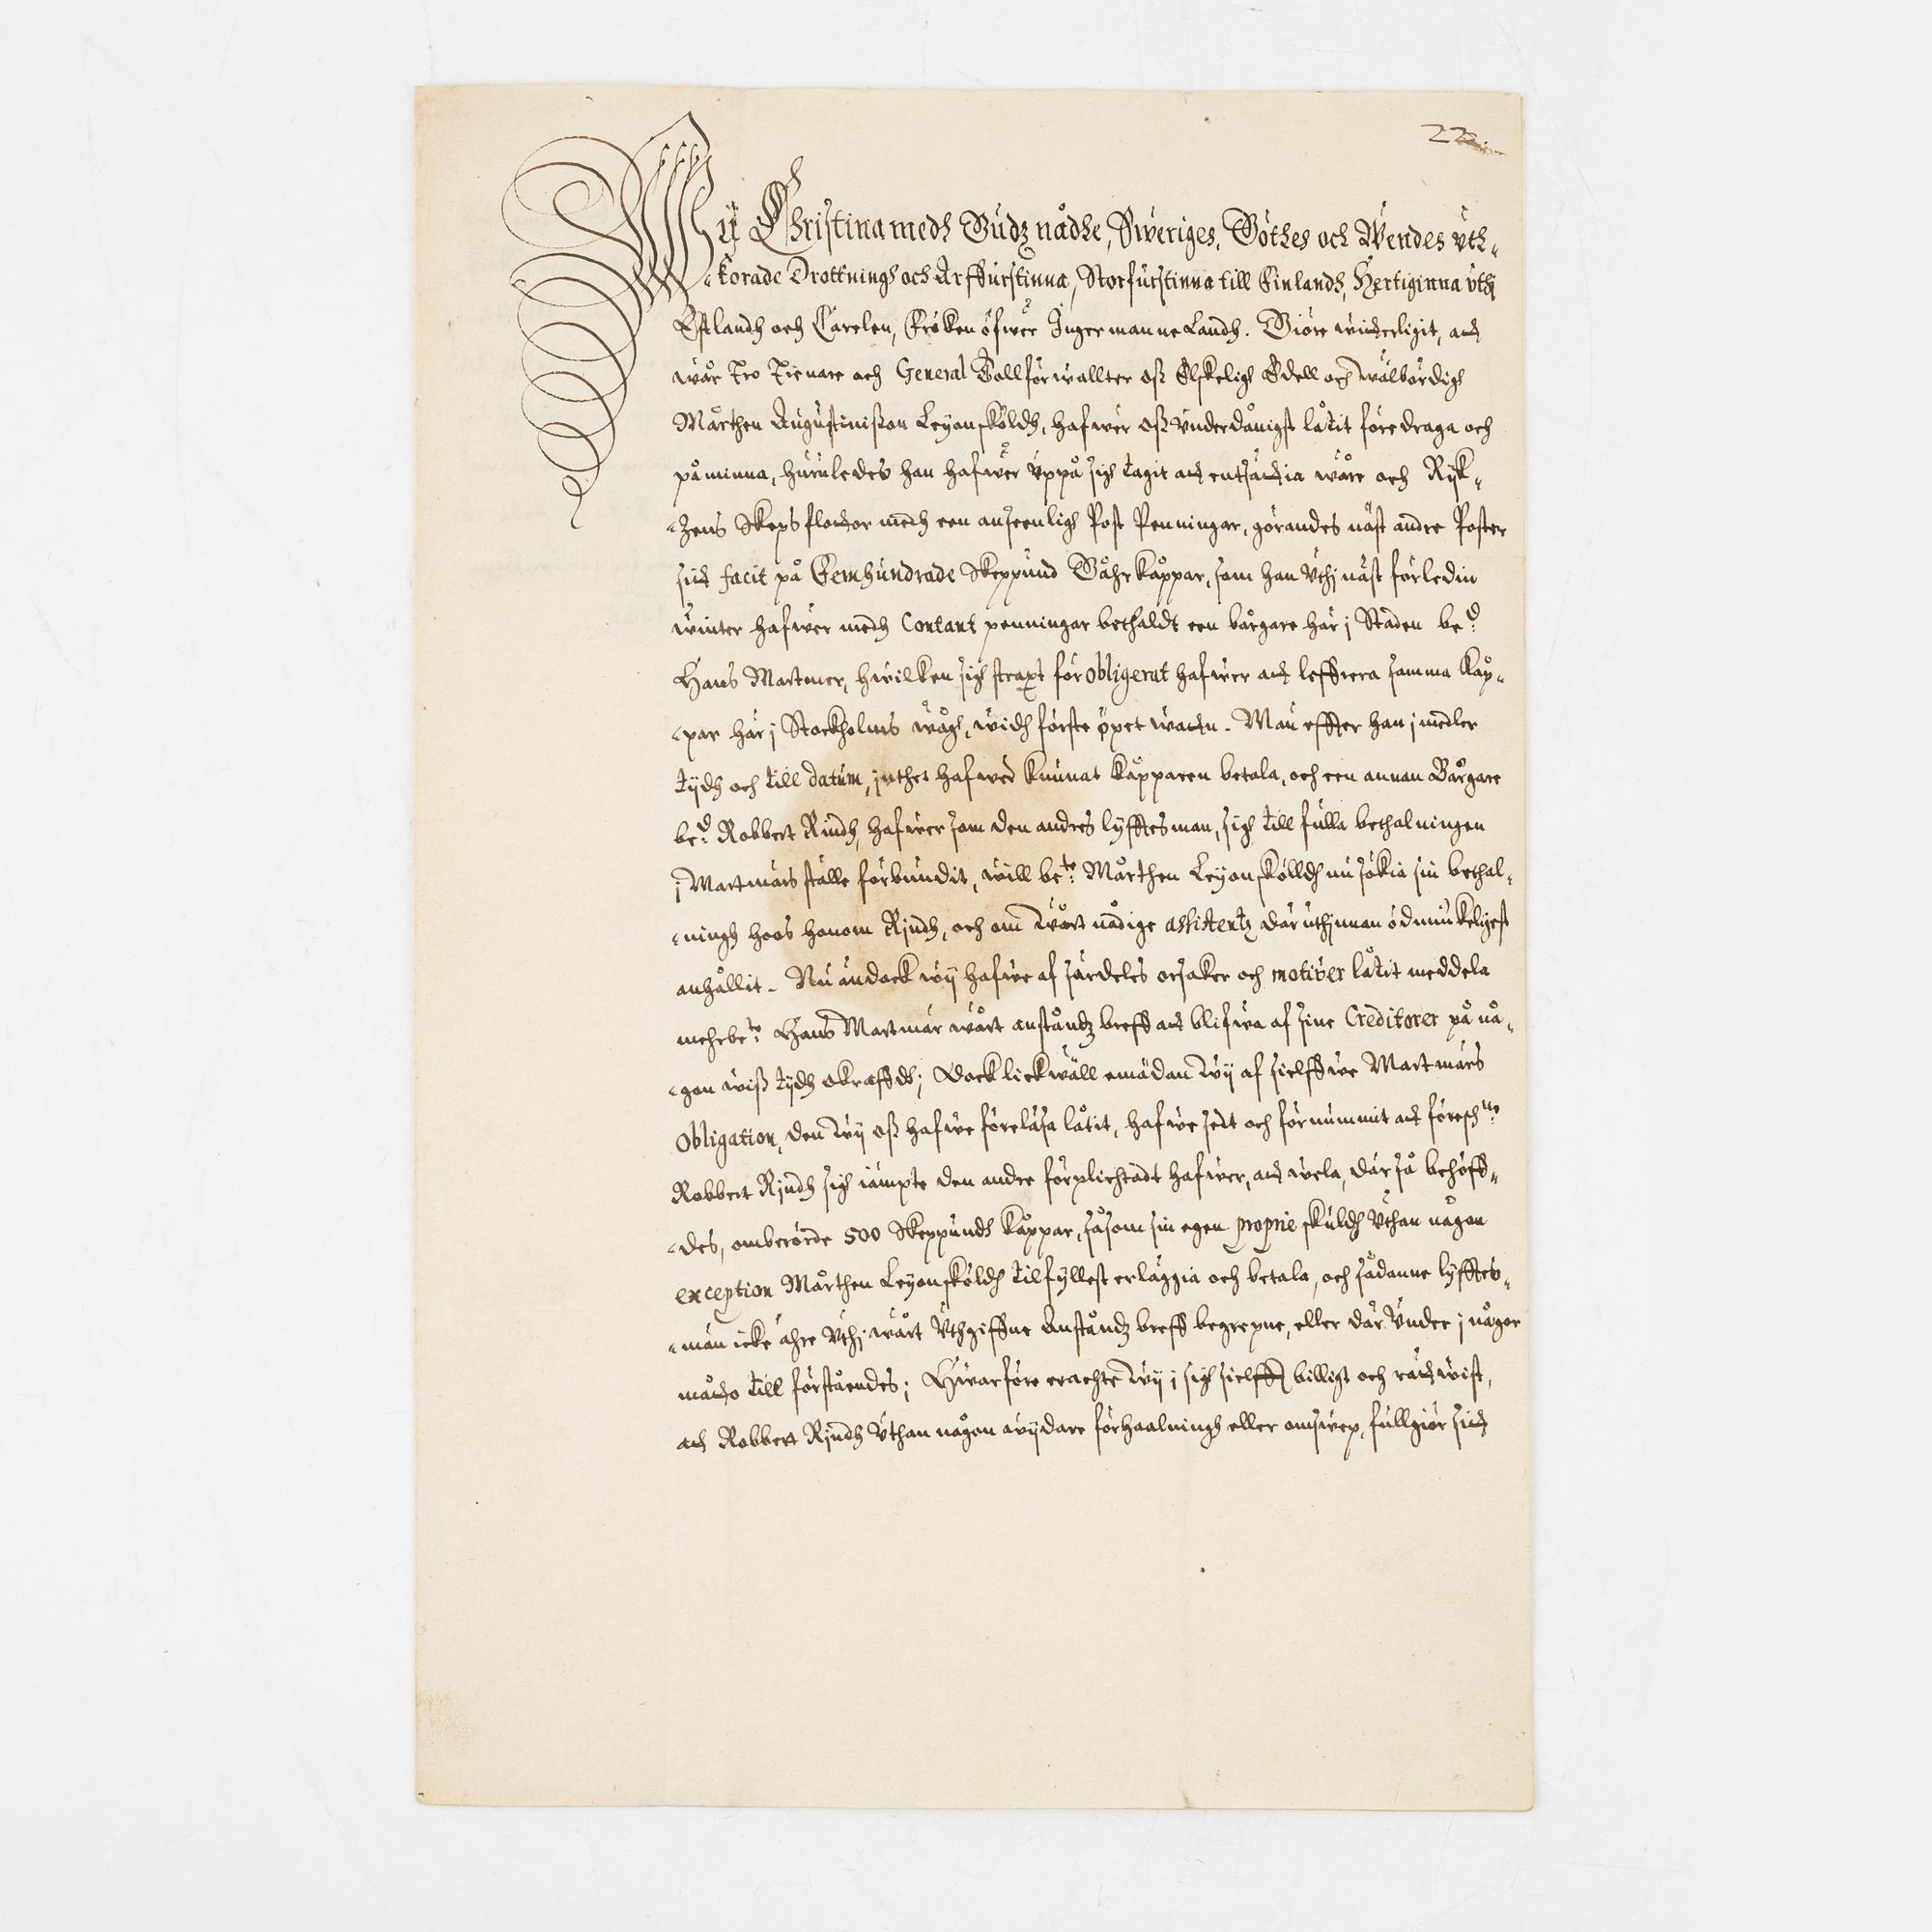 22
Wÿ Christina medh Gudz nådhe, Sweriges, Göthes och Wendes uth-
korade Drottningh och Arffurstinna, Storfurstinna till Finlandh, Hertiginna uthi
Estlandh och Carelen, Fröken öfwer Ingermanne Landh. Giöre witterligit, att
wår Tro Tienare och General Tollförwallter oß Elskeligh Edell och wälbördigh
Mårthen Augustinißon Leyonsköldh, hafwer oß Underdånigst låtit föredraga och
påminna, huruledes han hafwer uppå sigh tagit att entsättia wåre och Ryk-
zens Skeps flottor medh een anseenligh Post Penningar, görandes näst andre Poster
sitt facit på Femhundrade Skeppund Gåhrkåppar, som han uthj näst förledin
winter hafwer medh Contant penningar bethaldt een bårgare här j Staden be:d
Hans Martmer, hwilken sigh straxt för obligerat hafwer att leffrera samma Kåp-
par här j Stockholms wågh, widh förste öpet wattn. Män effter han jmedler
tydh och till datum, jnthet hafwer kunnat kåpparen betala, och een annan Bårgare
be:d Robbert Rindh, hafwer som den andres lyfftesman, sigh till fulla bethalningen
j Martmårs ställe förbundit, will be:te Mårthen Leyonsköldh nu sökia sin bethal-
ningh hoos honom Rjndh, och om wårt nådige assistentz där uthjnnan ödmiukeligest
anhållit. Nu ändock wij hafwe af särdeles orsaker och motiver låtit meddela
mehrbe:te Hans Martmär wårt anståndz breff att blifwa af sine Creditorer på nå-
gon wiß tydh okraffdh; Dock lickwäll emädan wij af sielffwe Martmårs
obligation, den wij oß hafwe föreläsa låtit, hafwe sedt och förnummit att föresch:ne
Robbert Rjndh sigh jämpte den andre förplichtadt hafwer, att wela, där så behöff-
des, omberörde 500 Skeppundh kåppar, såsom sin egen proprie skuldh Uthan någon
exception Mårthen Leyonsköldh tilfyllest erläggia och betala, och sådanne lyfftes-
män icke ähre Uthj wårt Uthgiffne Anståndz breff begrepne, eller där Under j någor
måtto till förståendes; Hwarföre erachte wij j sigh sielfft billigt och rättwist,
att Robbert Rjndh Uthan någon wijdare förhaalningh eller omswep, fullgiör sitt